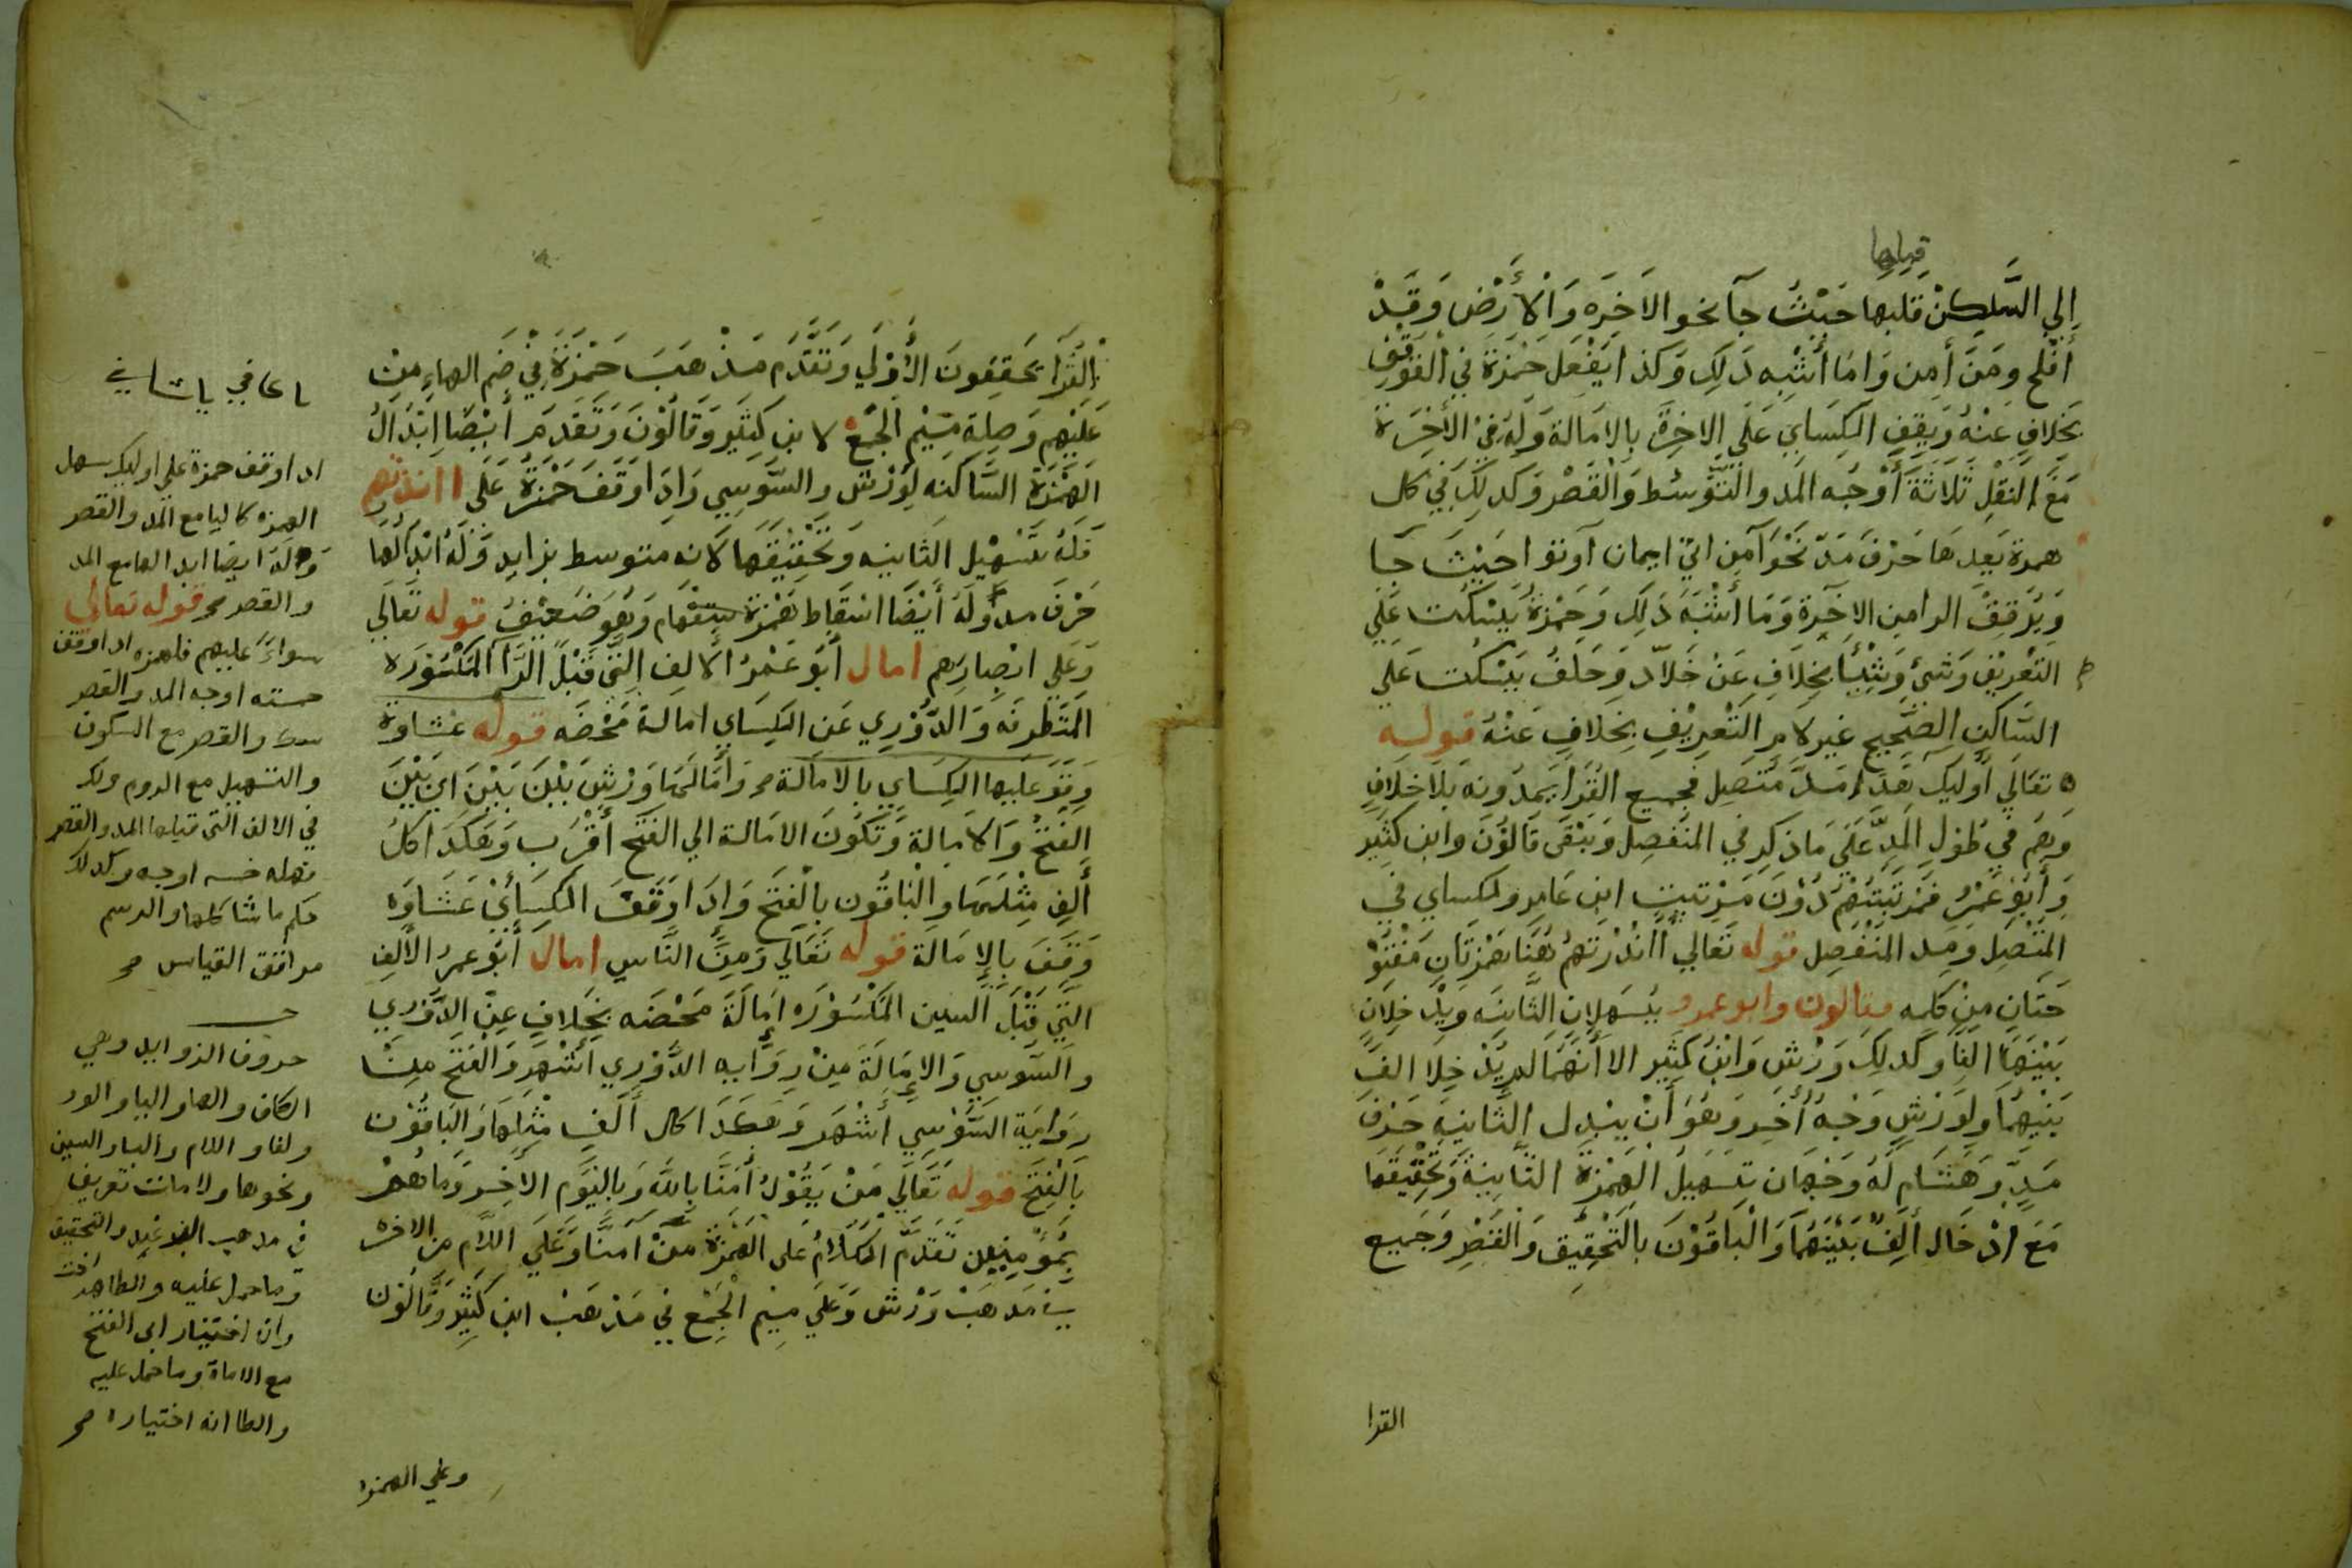 قبلها
إلي السَّاكِنْ قبلها حَيْثُ جآ نحو الاَخِرَه وَالأَرْض وَقَدْ
أفلح ومَنْ أمن وَامَا أشْبه ذَلِكِ وَكذا يَفْعل حَمْزَة في الْوَقْفِ
بخلافٍ عَنْهُ وَيَقِف الكِسَايي عَلَي الاخِرَة بالامَالة وَله في الأخِرَة
مَعَ النقلِ ثَلاثَةَ أَوْجُه المَد والتَّوسُط وَالْقَصْر وَكذلِكَ في كل
همزة بَعدهَا حَرْف مَدّ نَحْو آمن اتي ايمان آوتوا حَيْثَ جَا
وَيُرَقِقْ الرا من الاخِرة وَمَا أشْبَهَ ذَلِكَ وَحَمْزَةُ يَسْكُت عَلَي
التَعْرِيف وَشَيْ وَشَيْئًا بخِلاَفِ عَنْ خَلاَّد وَخلفُ يَسْكُت عَلَي
السَّاكن الصَّحِيح غير لام التَّعْرِيْفِ بِخلافِ عَنْهُ قوله
تعَالي أوليِكَ هَذَا مَدَّ مُتصِل فجميع القُرَا يَمدُونه بَلا خِلافٍ
وَهم في طُول المَدِّ عَلَي مَا ذكِر في المنَفصِل وَيَبْقَى قَالُوْنَ وابن كثِير
وَأبُو عَمْرُ فمَرْتَبَتَهُمْ دُوْنَ مَرْتبت ابن عَامِر والكساي في
المتَّصِل وَمد المنفَصِل قوله تَعَالي أأنْذَرْتَهُمْ هُنَا هَمْزتَانِ مَفْتُوْ
حَتَانِ مِنْ كلمه فقالون وابو عمرو يُسَهلانِ الثَّانيَه وَيدْخِلاَنِ
بَيْنَهَا الفِا وَكذلِكَ وَرْش وَابْنُ كَثِير الا أَنَهُمَا لم يُدْخِلا الفَ
بَيْنِهمَا وَلِوَرْشٍ وَجْهُ أُخَر وَهوَ أنْ يبْدِل الثَّانيَة حَرْف
مَدٍّ وَهَشَام لَهُ وَجْهَان تِسْهِيلُ الهَمْزَة الثَّانِيَة وَتَحْقِيْقهَا
مَعَ ادْخَال أَلِفٌ بَيْنَهُمَا وَالْبَاقُوْنَ بِالتَّحْقِيق وَالقَصْرِ وَجَميع
القرا
القُرَا يحَققونَ الأُوْلَي وَتَقَدَّم مَذْهبَ حَمْزَةَ في ضَم الهاءِ مِنْ
عَلَيْهِم وَصِلَة مِيْم الجَمْع لابن كَثِيْر وَقَالُوْنَ وَتَقَدم أيْضًا ابْدَالُ
الهَمْزَة السَّاكنه لِوَرْشٍ والسُّوسِي وَاذَا وَقَفَ حَمْزَةُ عَلَي اانذرتهم
فلَهُ تَسْهِيْل الثَانيه وَتحْقِيْقهَا لانه متوسط بزايد وَلهُ ابْدَالهَا
حَرْفَ مد وَلهُ أَيْضًا اسْقاط هَمْزة ستفهام وَهُوَ ضَعِيْفُ قوله تَعَالَي
وَعَلي ابْصارهِم امال أبُو عَمْرُ الالِف الَتِي قَبْلَ الرَّا المَكْسُوْرَه
المتَطَرفَه وَالدُّوْرِي عَن الكِسَاي امالة مَحْضَه قوله غشاوة
وَيقف عَليها الكِسَاي بالامالة وَأمَالهَا وَرْش بَيْنَ بَيْنَ اي بَيْن
الفتحُ وَالامالةِ وَتكوُنَ الامَالة الي الفَتح أقْرَب وَهَكذَا كلُ
أَلِفِ مِثْلهَا وَالْبَاقُون بالْفَتح وَاذَا وَقَف الكِسَائيْ غشَاوَه
وَقَفَ بِالإمَالَة قوله تَعَالي وَمِنَ النَّاسِ امال أبُوْ عمرُ الألِف
التي قَبْلَ السين المَكسُوْرَه إمَالَةً مَحْضَه بخِلافٍ عِن الدَّوْري
والسَّوسِي وَالامَالَةَ مِنْ رِوَايه الدَّوْرِي أشْهَر وَالفَتح مِنْ
رِوَاية السَّوْسِي أشْهَر وَهكَذَا كال أَلفِ مِثْلهَا وَالبَاقُوْن
بَالْفَتح قوله تَعَالَي مَنْ يَقُوْلُ أمَنَّا بِاللَّهَ وَبِاليَوَم الاخِر وَمَا هُمْ
بِمُؤمِنِين تَقَدَّمَ الكَلامُ علي الهَمْزَة مِنْ امنَّا وَعَلَي اللاَّم من الاخر
في مَذهَبْ وَرْش وَعَلَي مِيْم الْجَمْع فيْ مَذهَبْ ابن كَثِيْر وَقَالُوْنَ
وعلي الهمز
اذا وقف حمزة علي اوليك سهل
الهمزه كاليا مع المد والقصر
وله ايضا ابدالها مع المد
والقصر قوله تعالى
سواءَ عليهم فلهمزه اذا وقف
خمسة اوجه المد والقصر
والقصر مع السكون
والتسهيل مع الروم وذلك
في الالف التي قبلها المد والقصر
فهذه خمسه اوجه وكذلك
حكم ما شاكلها والرسم
موافق القياس
حروف الزوايد وهي
الكاف والها واليا والواو
والفا واللام والبا والسين
ونحوها ولامات تعريف
وما حمل عليه والظاهر
وان اختيار ابي الفتح
مع الامالة وما حمل عليه
والظا انه اختياره